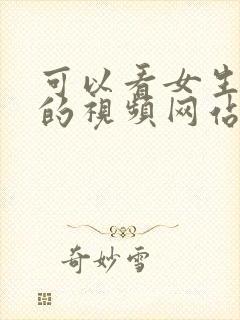 可以看女生
的視頻网佔
奇妙雪